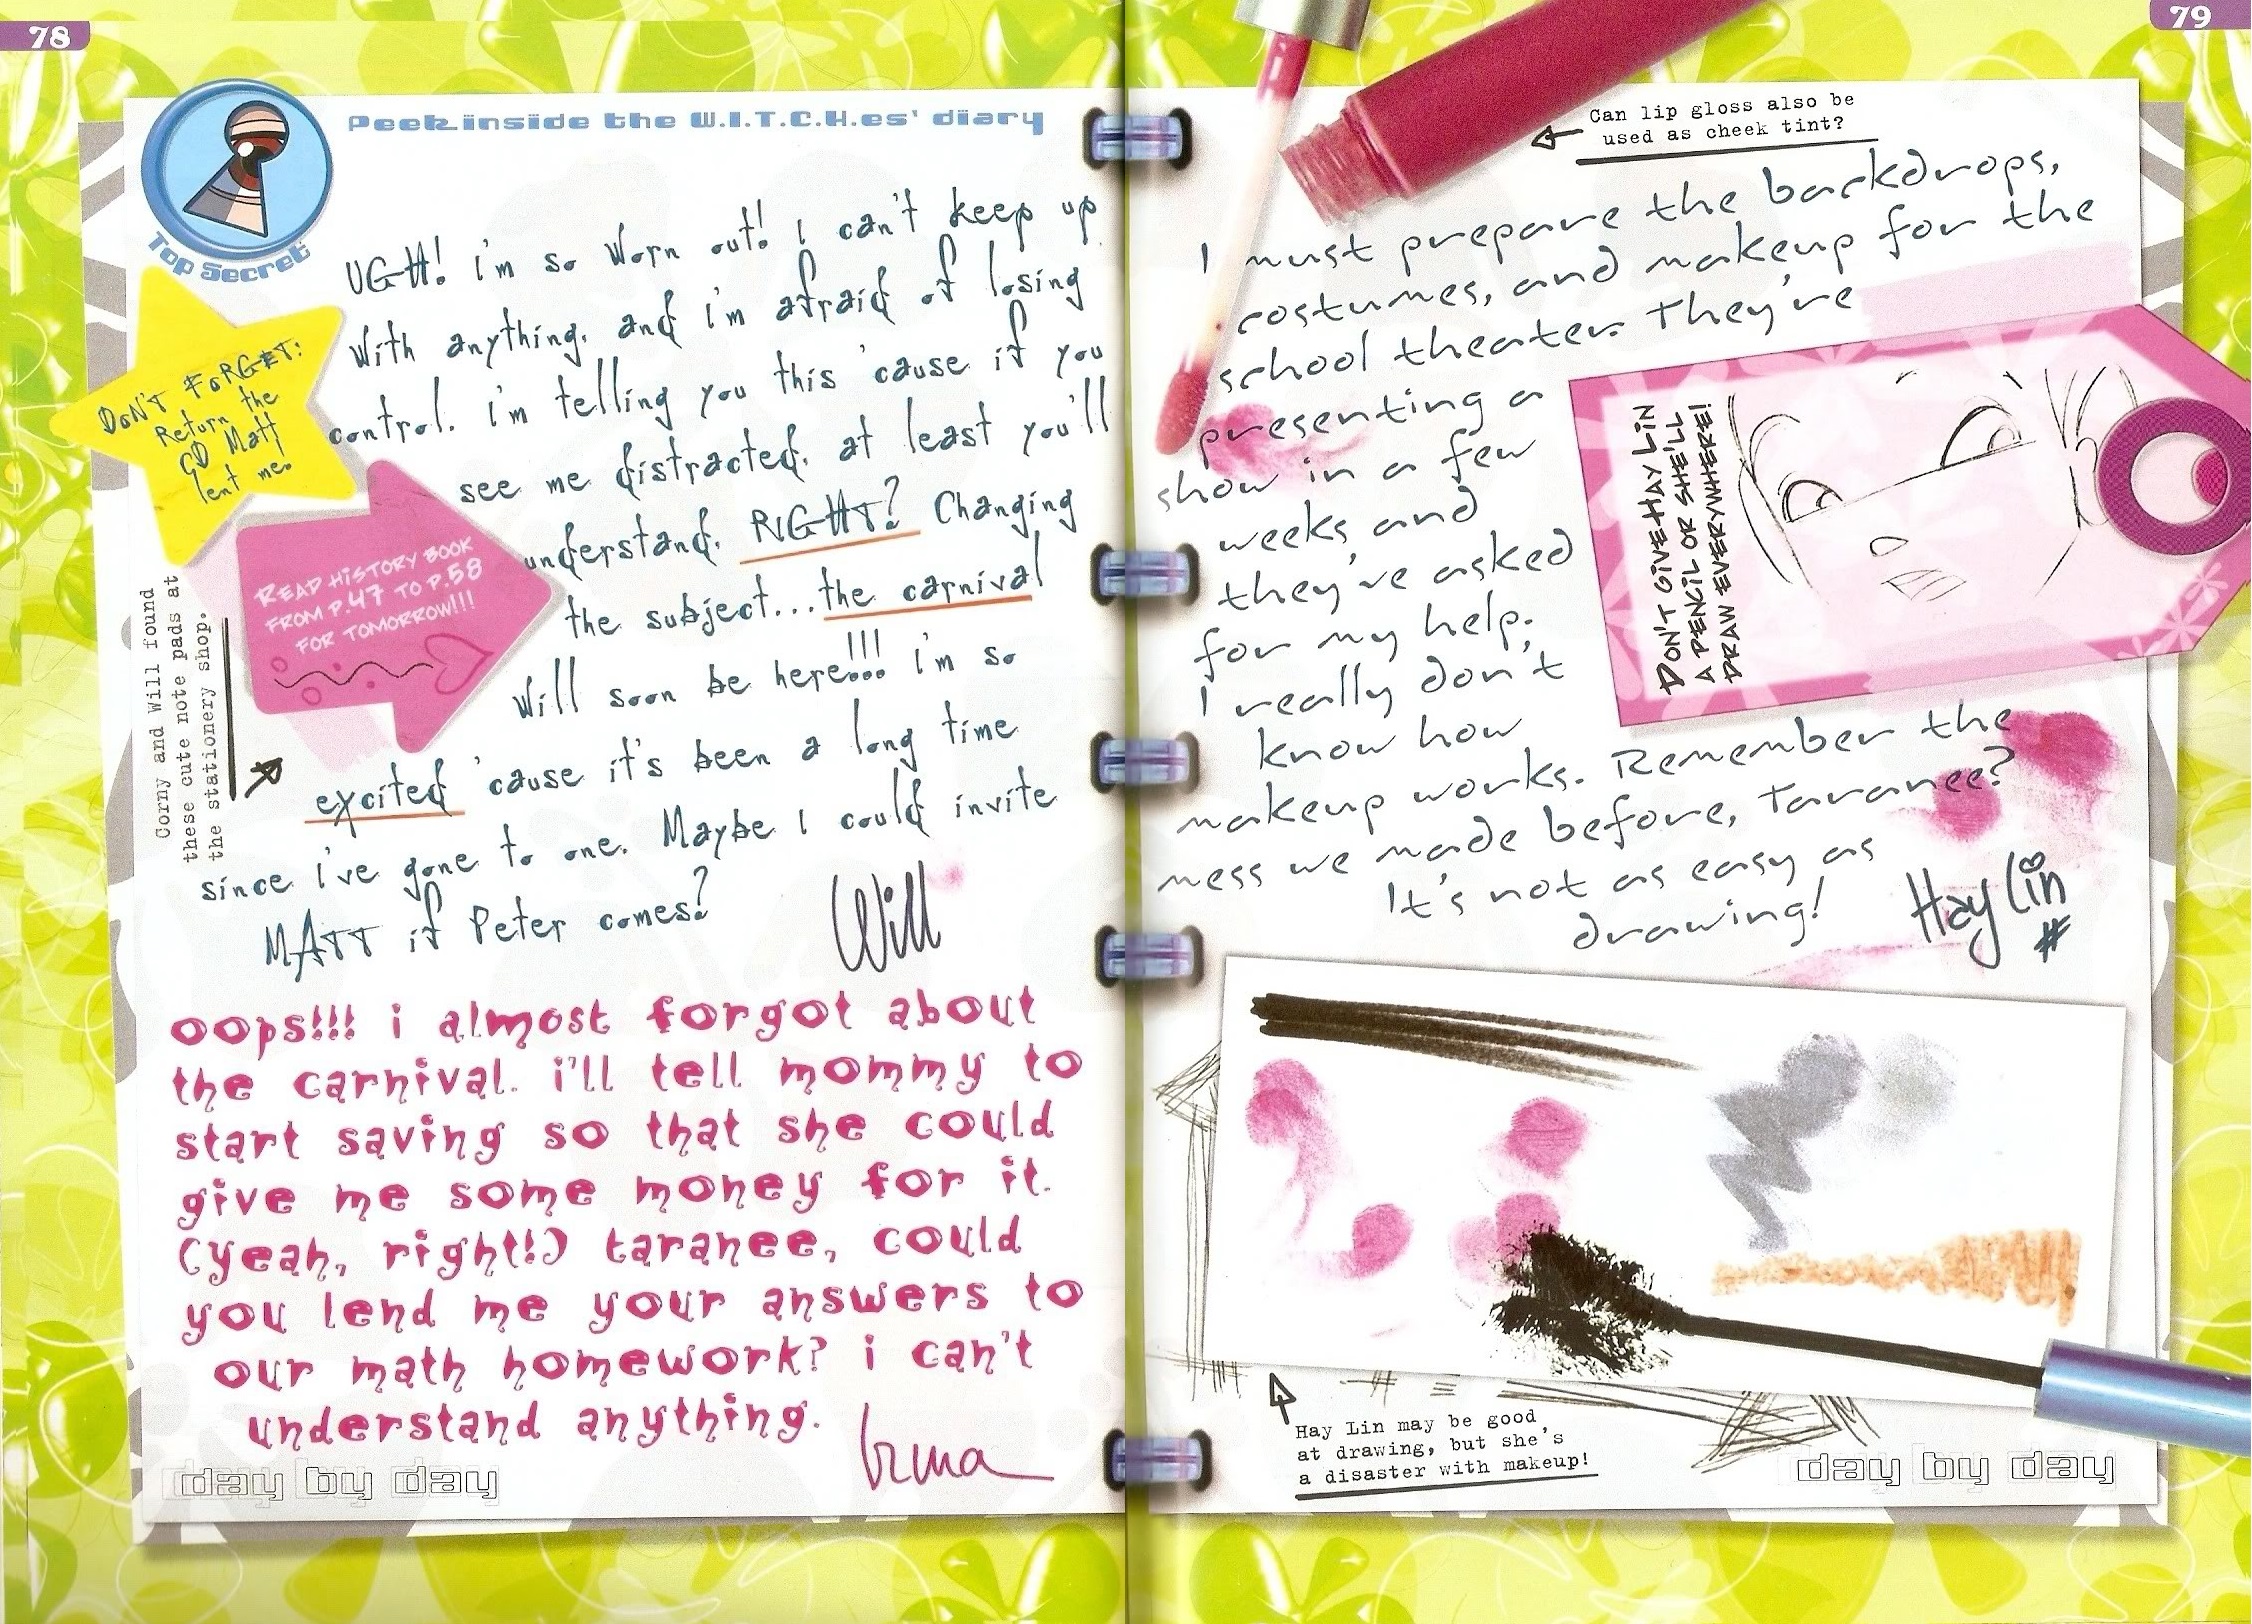 78
Peek inside the W.I.T.C.H.es' diary
Top Secret
UGH! i'm so worn out! I can't keep up
with anything, and i'm afraid of losing
control. i'm telling you this 'cause if you
see me distracted, at least you'll
understand. RIGHT? Changing
the subject...the carnival
will soon be here!!! i'm so
excited 'cause it's been a long time
since i've gone to one. Maybe I could invite
MATT if Peter comes?
Will
DON'T FORGET:
Return the
CD Matt
lent me.
READ HISTORY BOOK
FROM P.47 TO P.58
FOR TOMORROW!!!
Corny and Will found
these cute note pads at
the stationery shop.
oops!!! i almost forgot about
the carnival. i'll tell mommy to
start saving so that she could
give me some money for it.
(yeah, right!) taranee, could
you lend me your answers to
our math homework? i can't
understand anything.
Irma
day by day
79
Can lip gloss also be
used as cheek tint?
I must prepare the backdrops,
costumes, and makeup for the
school theater. They're
presenting a
show in a few
weeks, and
they've asked
for my help;
I really don't
know how
makeup works. Remember the
mess we made before, Taranee?
It's not as easy as
drawing!
Hay Lin
#
DON'T GIVE HAY LIN
A PENCIL OR SHE'LL
DRAW EVERYWHERE!
Hay Lin may be good
at drawing, but she's
a disaster with makeup!
day by day